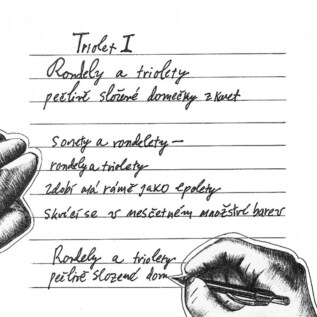 Triolet I
Rondely a triolety
pečlivě složené domečky z karet
sonety a rondelety –
rondely a triolety
zdobí má rámě jako epolety
skvící se v nesčetném množství barev
Rondely a triolety
pečlivě složené dom